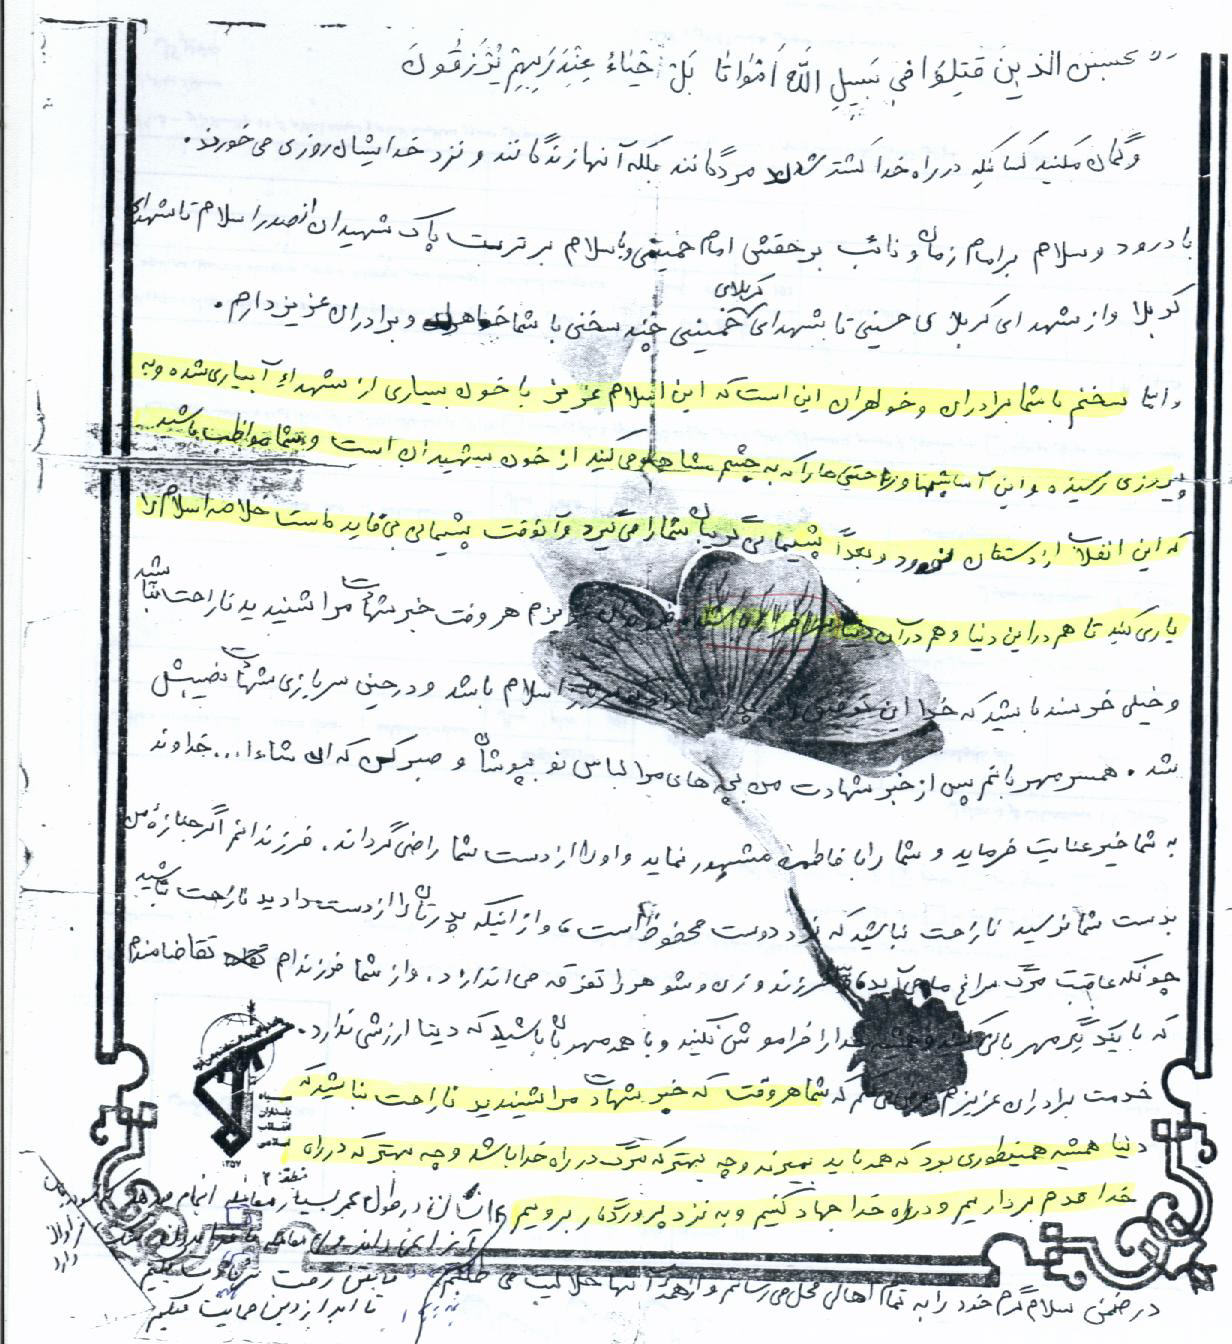 تحسبن الذین قتلوا فی سبیل الله امواتا بل احیاء عند ربهم یرزقون
و گمان مکنید کسانیکه در راه خدا کشته شدند مردگانند بلکه آنها زندگانند و نزد خدایشان روزی می‌خورند.
با درود و سلام بر امام زمان و نائب بر حقش امام خمینی و با سلام بر تربت پاک شهیدان از صدر اسلام تا شهدای
کربلا و از شهدای کربلای حسینی تا شهدای کربلای خمینی چند سخنی با شما خواهران و برادران عزیز دارم.
سخنم با شما برادران و خواهران این است که این اسلام عزیز با خون بسیاری از شهداء آبیاری شده و به
پیروزی رسیده و این آسایشها و راحتی‌ها را که به چشم مشاهده می‌کنید از خون شهیدان است و شما مواظب باشید
که این انقلاب از دستتان نرود و بعداً پشیمانی گریبان شما را می‌گیرد و آنوقت پشیمانی بی‌فایده است خلاصه اسلام را
یاری کنید تا هم در این دنیا و هم در آن دنیا هر وقت خبر شهادت مرا شنیدید ناراحت نباشید
و خیلی خرسند باشید که خدا این اسلام باشد و در حین سربازی شهادت نصیبش
شد. همسر مهربانم پس از خبر شهادت من بچه‌های مرا لباس نو بپوشان و صبر کن که ان شاءا... خداوند
به شما خیر عنایت فرماید و شما را با فاطمه محشور نماید و او را از دست شما راضی گرداند. فرزندانم اگر جنازهٔ من
بدست شما نرسید ناراحت نباشید که نزد دوست محفوظ است، و از اینکه پدرتان را از دست دادید ناراحت نباشید
چونکه عاقبت مرگ سراغ ما می‌آید فرزند و زن و شوهر را تفرقه می‌اندازد. و از شما فرزندانم تقاضامندم
که با یکدیگر مهربانی کنید خدا را فراموش نکنید و با هم مهربان باشید که دنیا ارزشی ندارد.
خدمت برادران عزیزم عرض می‌کنم که شما هر وقت که خبر شهادت مرا شنیدید ناراحت نباشید که
دنیا همیشه همینطوری بود که همه باید بمیرند و چه بهتر که مرگ در راه خدا باشد و چه بهتر که در راه
خدا قدم برداریم و در راه خدا جهاد کنیم و به نزد پروردگار برویم
انسان در طول عمر بسیار انجام
در ضمن سلام گرم خود را به تمام اهالی محل می‌رسانم و از همهٔ آنها حلالیت می‌طلبم
تا ابد از دین حمایت میکنیم
سپاه
پاسداران
انقلاب
اسلامی
۱۳۵۷
منطقه ۲